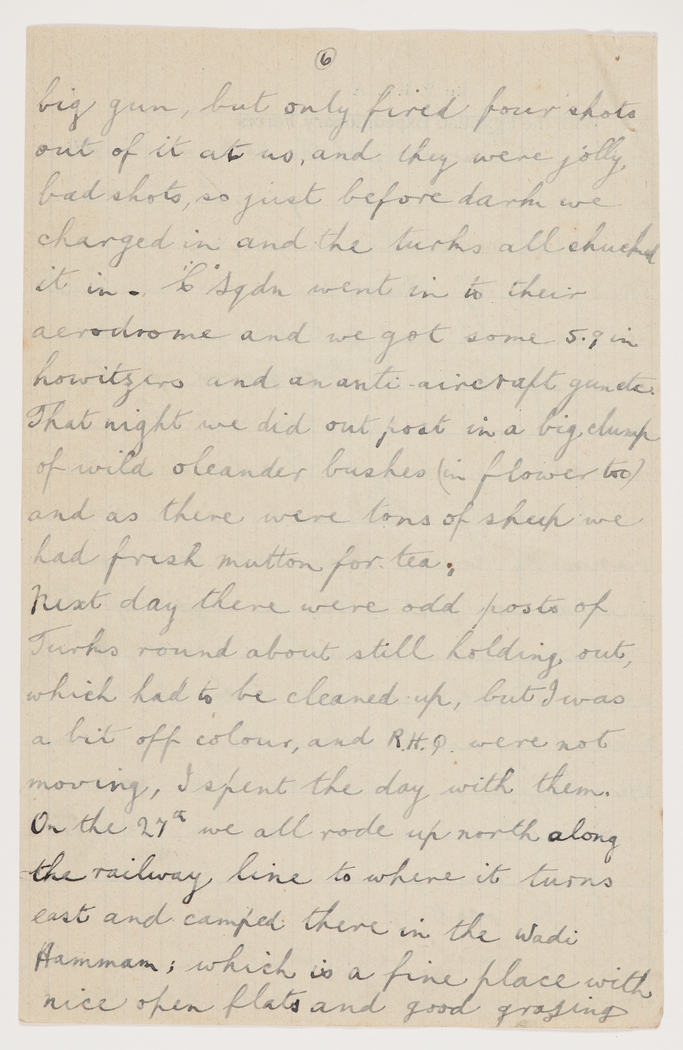 6
big gun, but only fired four shots
out of it at us, and they were jolly
bad shots, so just before dark we
charged in and the turks all chucked
it in. "C" Sqdn went in to their
aerodrome and we got some 5.9 in
howitzers and an anti-aircraft gun etc.
That night we did out post in a big clump
of wild oleander bushes (in flower too)
and as there were tons of sheep we
had fresh mutton for tea.
Next day there were odd posts of
Turks round about still holding out,
which had to be cleaned up, but I was
a bit off colour, and R.H.Q. were not
moving, I spent the day with them.
On the 27th we all rode up north along
the railway line to where it turns
east and camped there in the Wadi
Hammam; which is a fine place with
nice open flats and good grazing